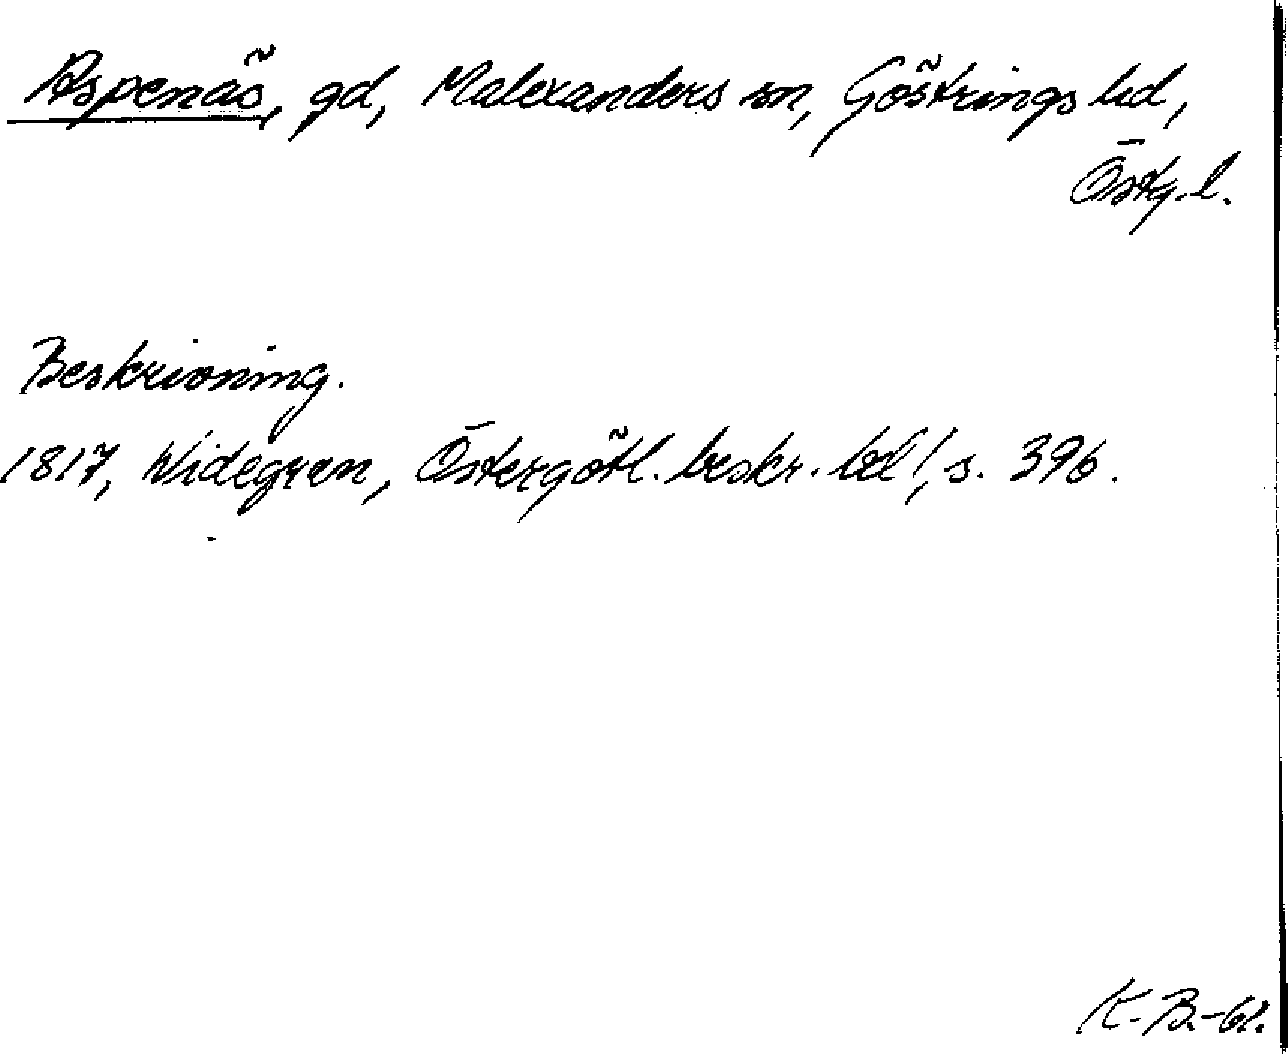 Aspenäs, gd, Malexanders sn, Göstrings hd,
Östg. l.
Beskrivning.
1817, Widegren, Östergötl. beskr. bd 1, s. 396.
K-B.-61.